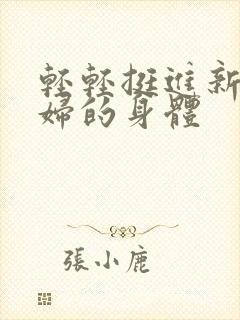 輕輕挺進新
婦的身體
張小鹿